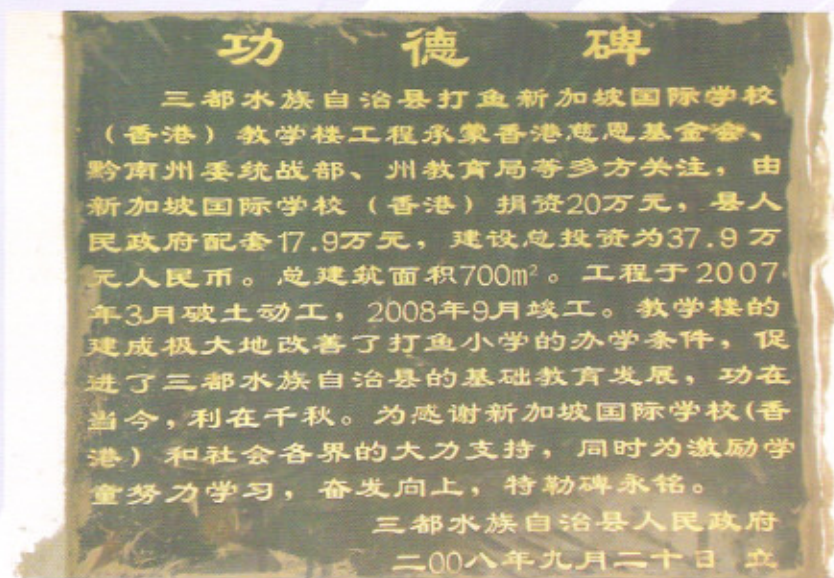 功德碑
三都水族自治县打鱼新加坡国际学校
（香港）教学楼工程承蒙香港慈恩基金会、
黔南州委统战部、州教育局等多方关注，由
新加坡国际学校（香港）捐资20万元，县人
民政府配套17.9万元，建设总投资为37.9万
元人民币。总建筑面积700m²。工程于2007
年3月破土动工，2008年9月竣工。教学楼的
建成极大地改善了打鱼小学的办学条件，促
进了三都水族自治县的基础教育发展，功在
当今，利在千秋。为感谢新加坡国际学校(香
港）和社会各界的大力支持，同时为激励学
童努力学习，奋发向上，特勒碑永铭。
三都水族自治县人民政府
二00八年九月二十日 立